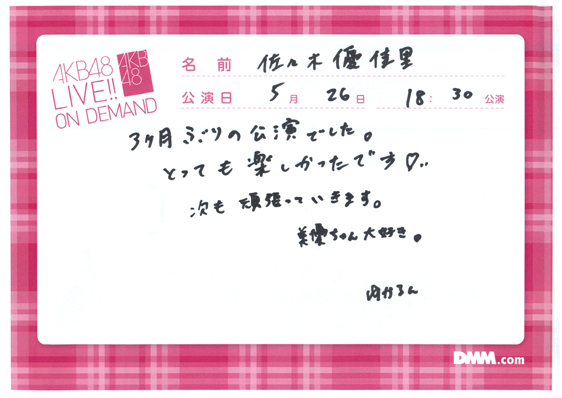 AKB48
LIVE!!
ON DEMAND
AKB
48
名 前 佐々木優佳里
公演日 5月 26日 18:30公演
3ヶ月ぶりの公演でした。
とっても楽しかったです♡..
次も頑張っていきます。
美優ちゃん大好き。
DMM.com